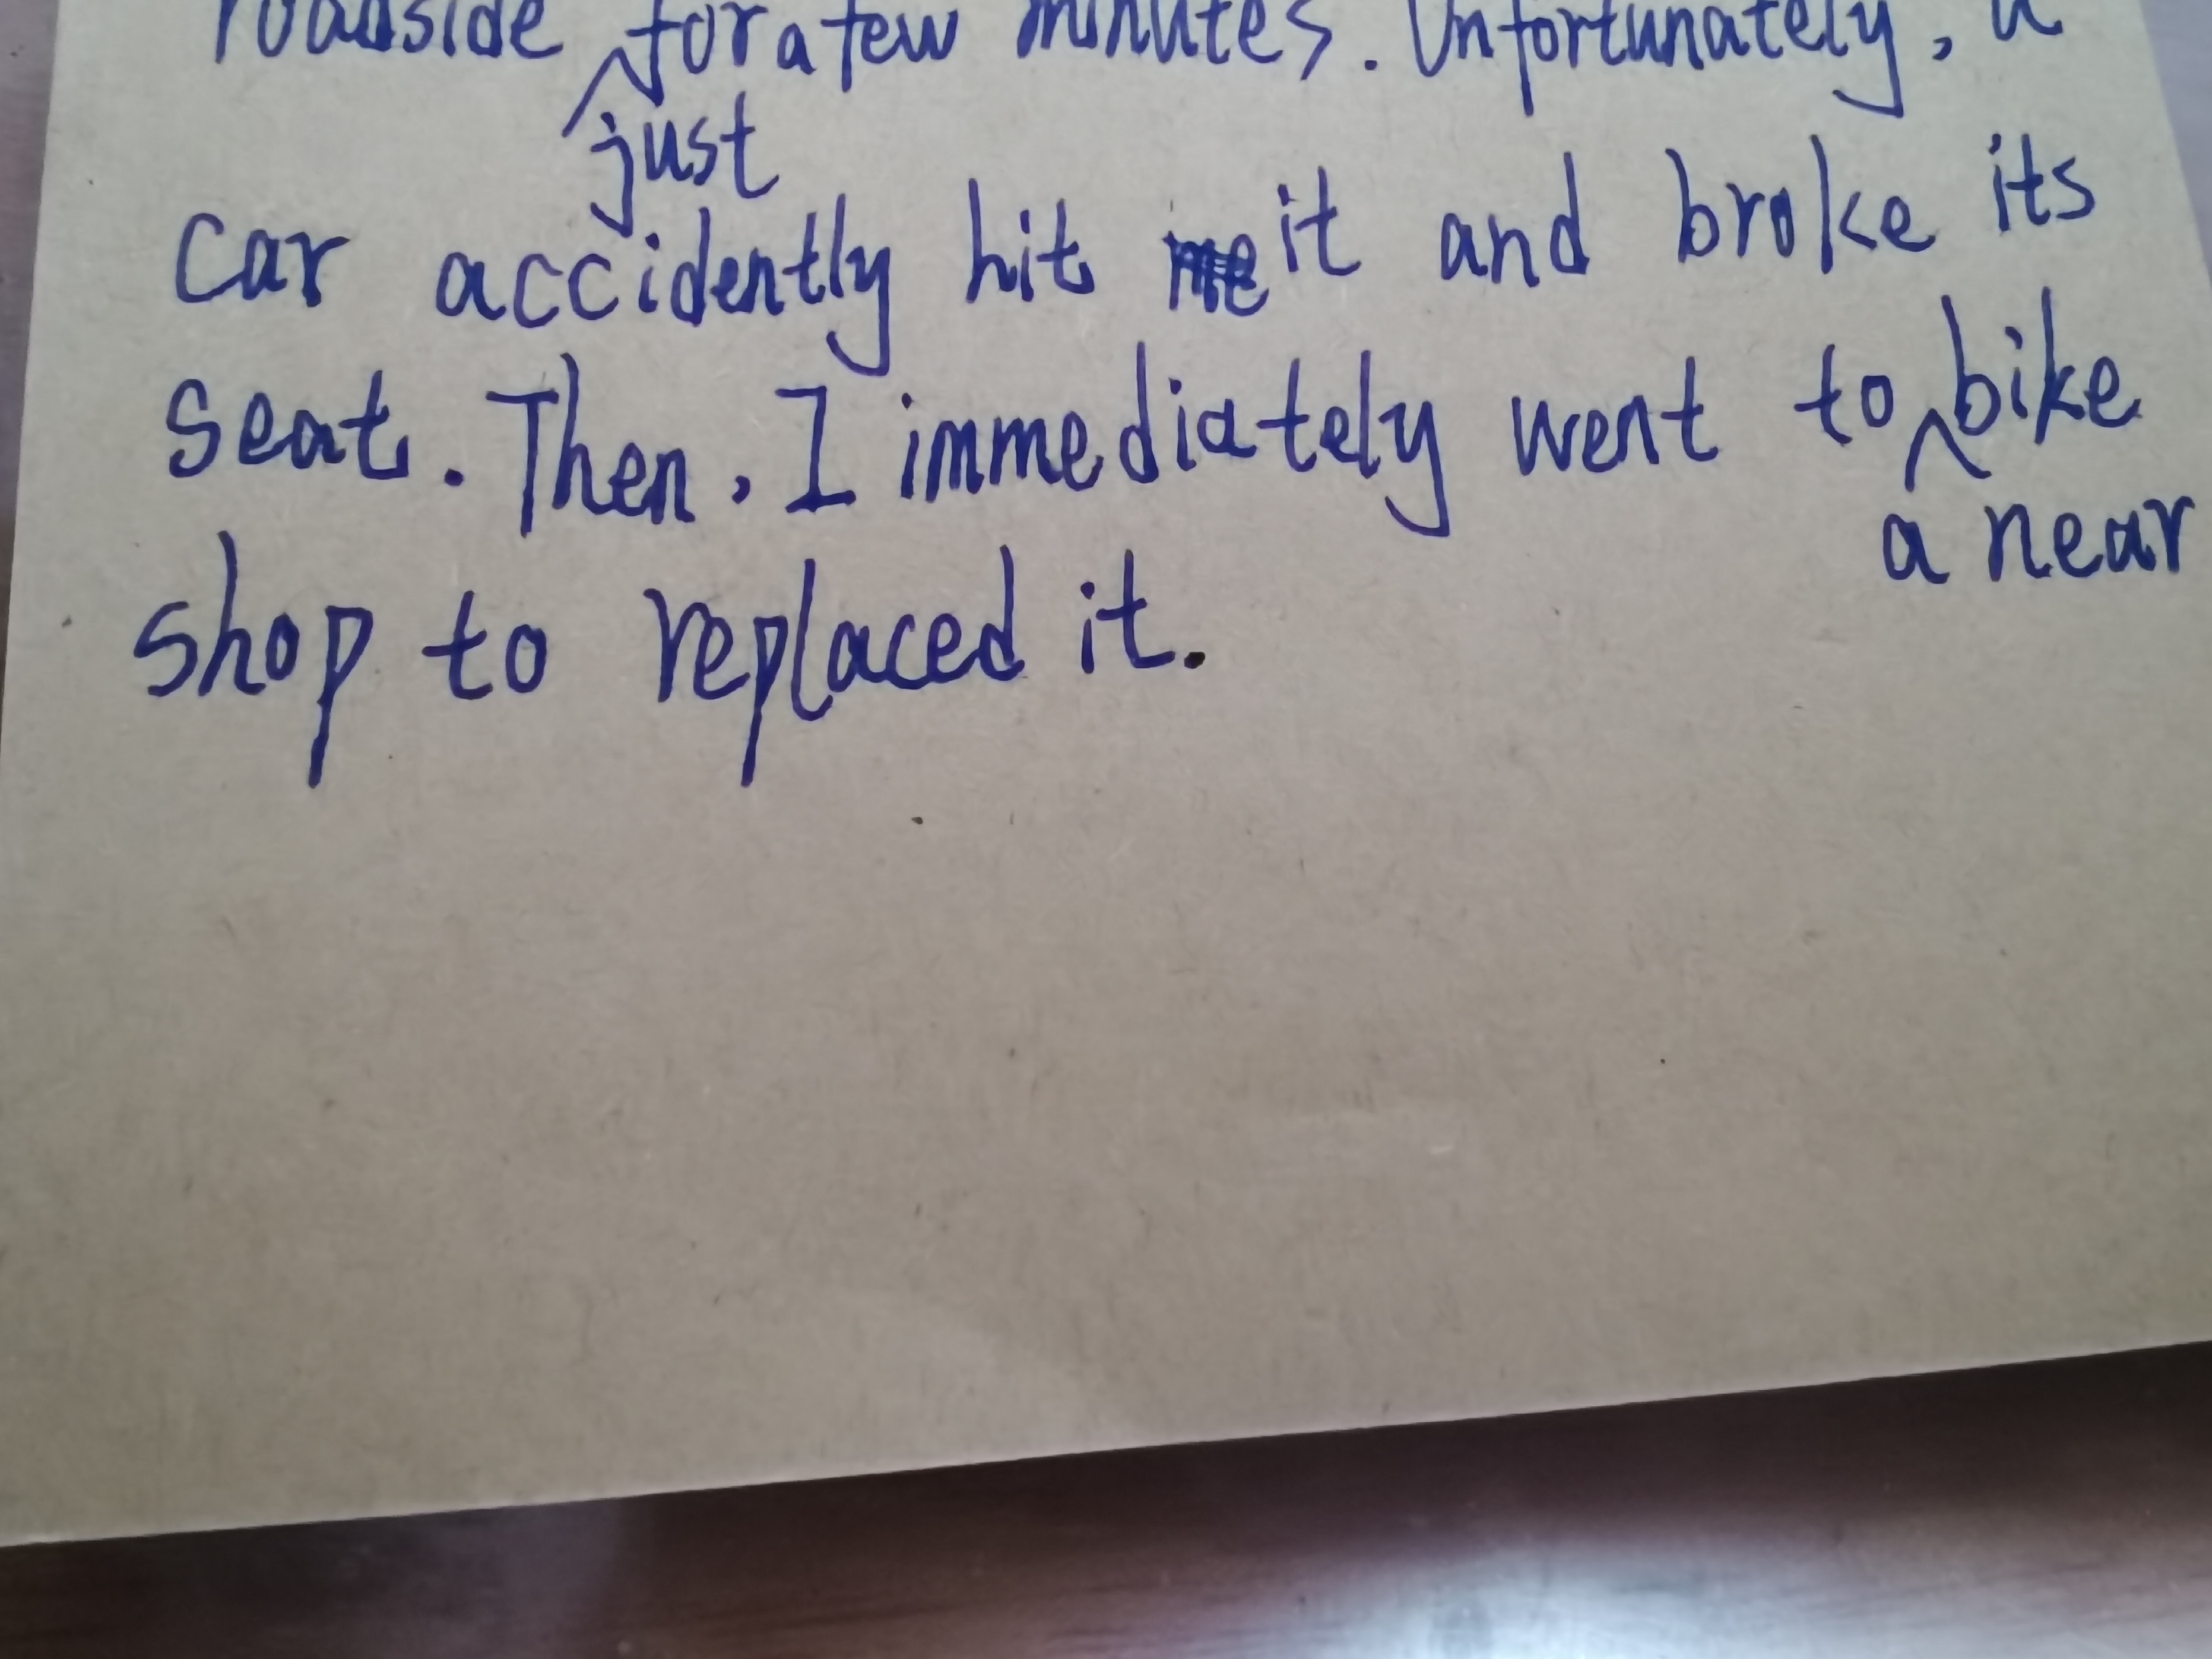 roadside just for a few minutes. Unfortunately, a
car accidently hit it and broke its
seat. Then, I immediately went to a near bike
shop to replaced it.